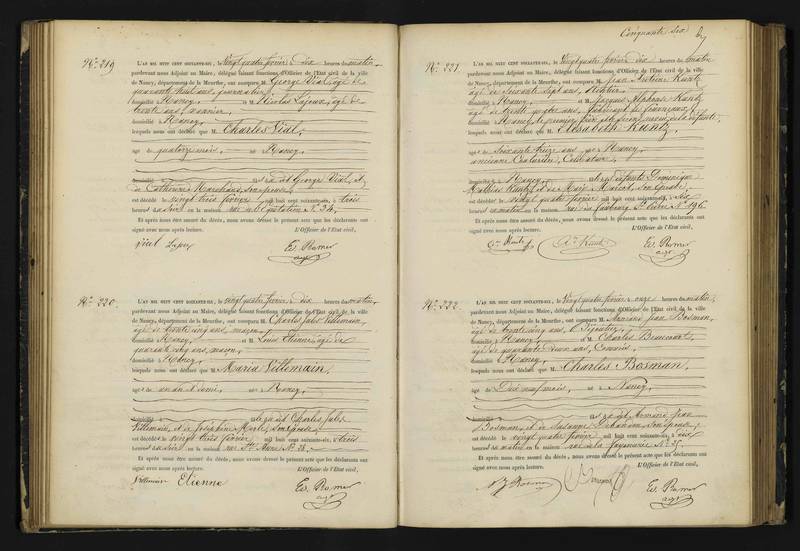 N° 219
L'AN MIL HUIT CENT SOIXANTE-SIX, le Vingt quatre février à dix heures du matin
pardevant nous Adjoint au Maire, délégué faisant fonctions d'Officier de l'Etat civil de la ville
de Nancy, département de la Meurthe, ont comparu M. George Vial, âgé de
quarante huit ans, journalier,
domicilié à Nancy, et M. Nicolas Lajoux, âgé de
trente ans, manoeuvre,
domicilié à Nancy,
lesquels nous ont déclaré que M. Charles Vial,
âgé de quatorze mois, né à Nancy,
domicilié à
fils de George Vial, et
de Catherine Marchand, son épouse,
est décédé le vingt trois février mil huit cent soixante-six, à trois
heures du soir en la maison rue de l'Equitation N° 24,
Et après nous être assuré du décès, nous avons dressé le présent acte que les déclarants ont
signé avec nous après lecture. L'Officier de l'Etat civil,
N° 220
L'AN MIL HUIT CENT SOIXANTE-SIX, le Vingt quatre février à dix heures du matin,
pardevant nous Adjoint au Maire, délégué faisant fonctions d'Officier de l'Etat civil de la ville
de Nancy, département de la Meurthe, ont comparu M. Charles Jules Villemain,
âgé de trente cinq ans, maçon,
domicilié à Nancy, et M. Louis Etienne, âgé de
quarante cinq ans, maçon,
domicilié à Nancy,
lesquels nous ont déclaré que M. Maria Villemain,
âgée de un an et demi, née à Nancy,
domicilié à
fille de Charles Jules
Villemain, et de Joséphine
est décédée le vingt trois février mil huit cent soixante-six, à trois
heures du soir en la maison rue Ste Anne N° 28,
Et après nous être assuré du décès, nous avons dressé le présent acte que les déclarants ont
signé avec nous après lecture. L'Officier de l'Etat civil,
Villemain Etienne
Cinquante six
N° 221
L'AN MIL HUIT CENT SOIXANTE-SIX, le Vingt quatre février à dix heures du matin
pardevant nous Adjoint au Maire, délégué faisant fonctions d'Officier de l'Etat civil de la ville
de Nancy, département de la Meurthe, ont comparu M. Jean Antoine Kuntz
âgé de soixante sept ans, Rentier,
domicilié à Nancy, et M. Jacques Alphonse Kuntz
âgé de trente quatre ans,
domicilié à Nancy, le premier frère et le second neveu de la défunte,
lesquels nous ont déclaré que M. Elisabeth Kuntz,
âgée de soixante treize ans, née à Nancy,
ancienne Couturière, Célibataire,
domiciliée à Nancy, fille des défunts Dominique
Mathieu Kuntz, et de Marie Marcot, son épouse,
est décédée le vingt quatre février mil huit cent soixante-six, à six
heures du matin en la maison rue du faubourg St Pierre N° 196
Et après nous être assuré du décès, nous avons dressé le présent acte que les déclarants ont
signé avec nous après lecture. L'Officier de l'Etat civil,
N° 222
L'AN MIL HUIT CENT SOIXANTE-SIX, le Vingt quatre février à onze heures du matin,
pardevant nous Adjoint au Maire, délégué faisant fonctions d'Officier de l'Etat civil de la ville
de Nancy, département de la Meurthe, ont comparu M. Armand Jean Bosman,
âgé de trente cinq ans, Bijoutier,
domicilié à Nancy, et M. Charles
âgé de quarante deux ans, Commis,
domicilié à Nancy,
lesquels nous ont déclaré que M. Charles Bosman,
âgé de Dix neuf mois, né à Nancy,
domicilié à
fils de Armand Jean
Bosman, et de Suzanne son épouse,
est décédé le vingt quatre février mil huit cent soixante-six, à dix
heures du matin en la maison rue de la N° 25,
Et après nous être assuré du décès, nous avons dressé le présent acte que les déclarants ont
signé avec nous après lecture. L'Officier de l'Etat civil,